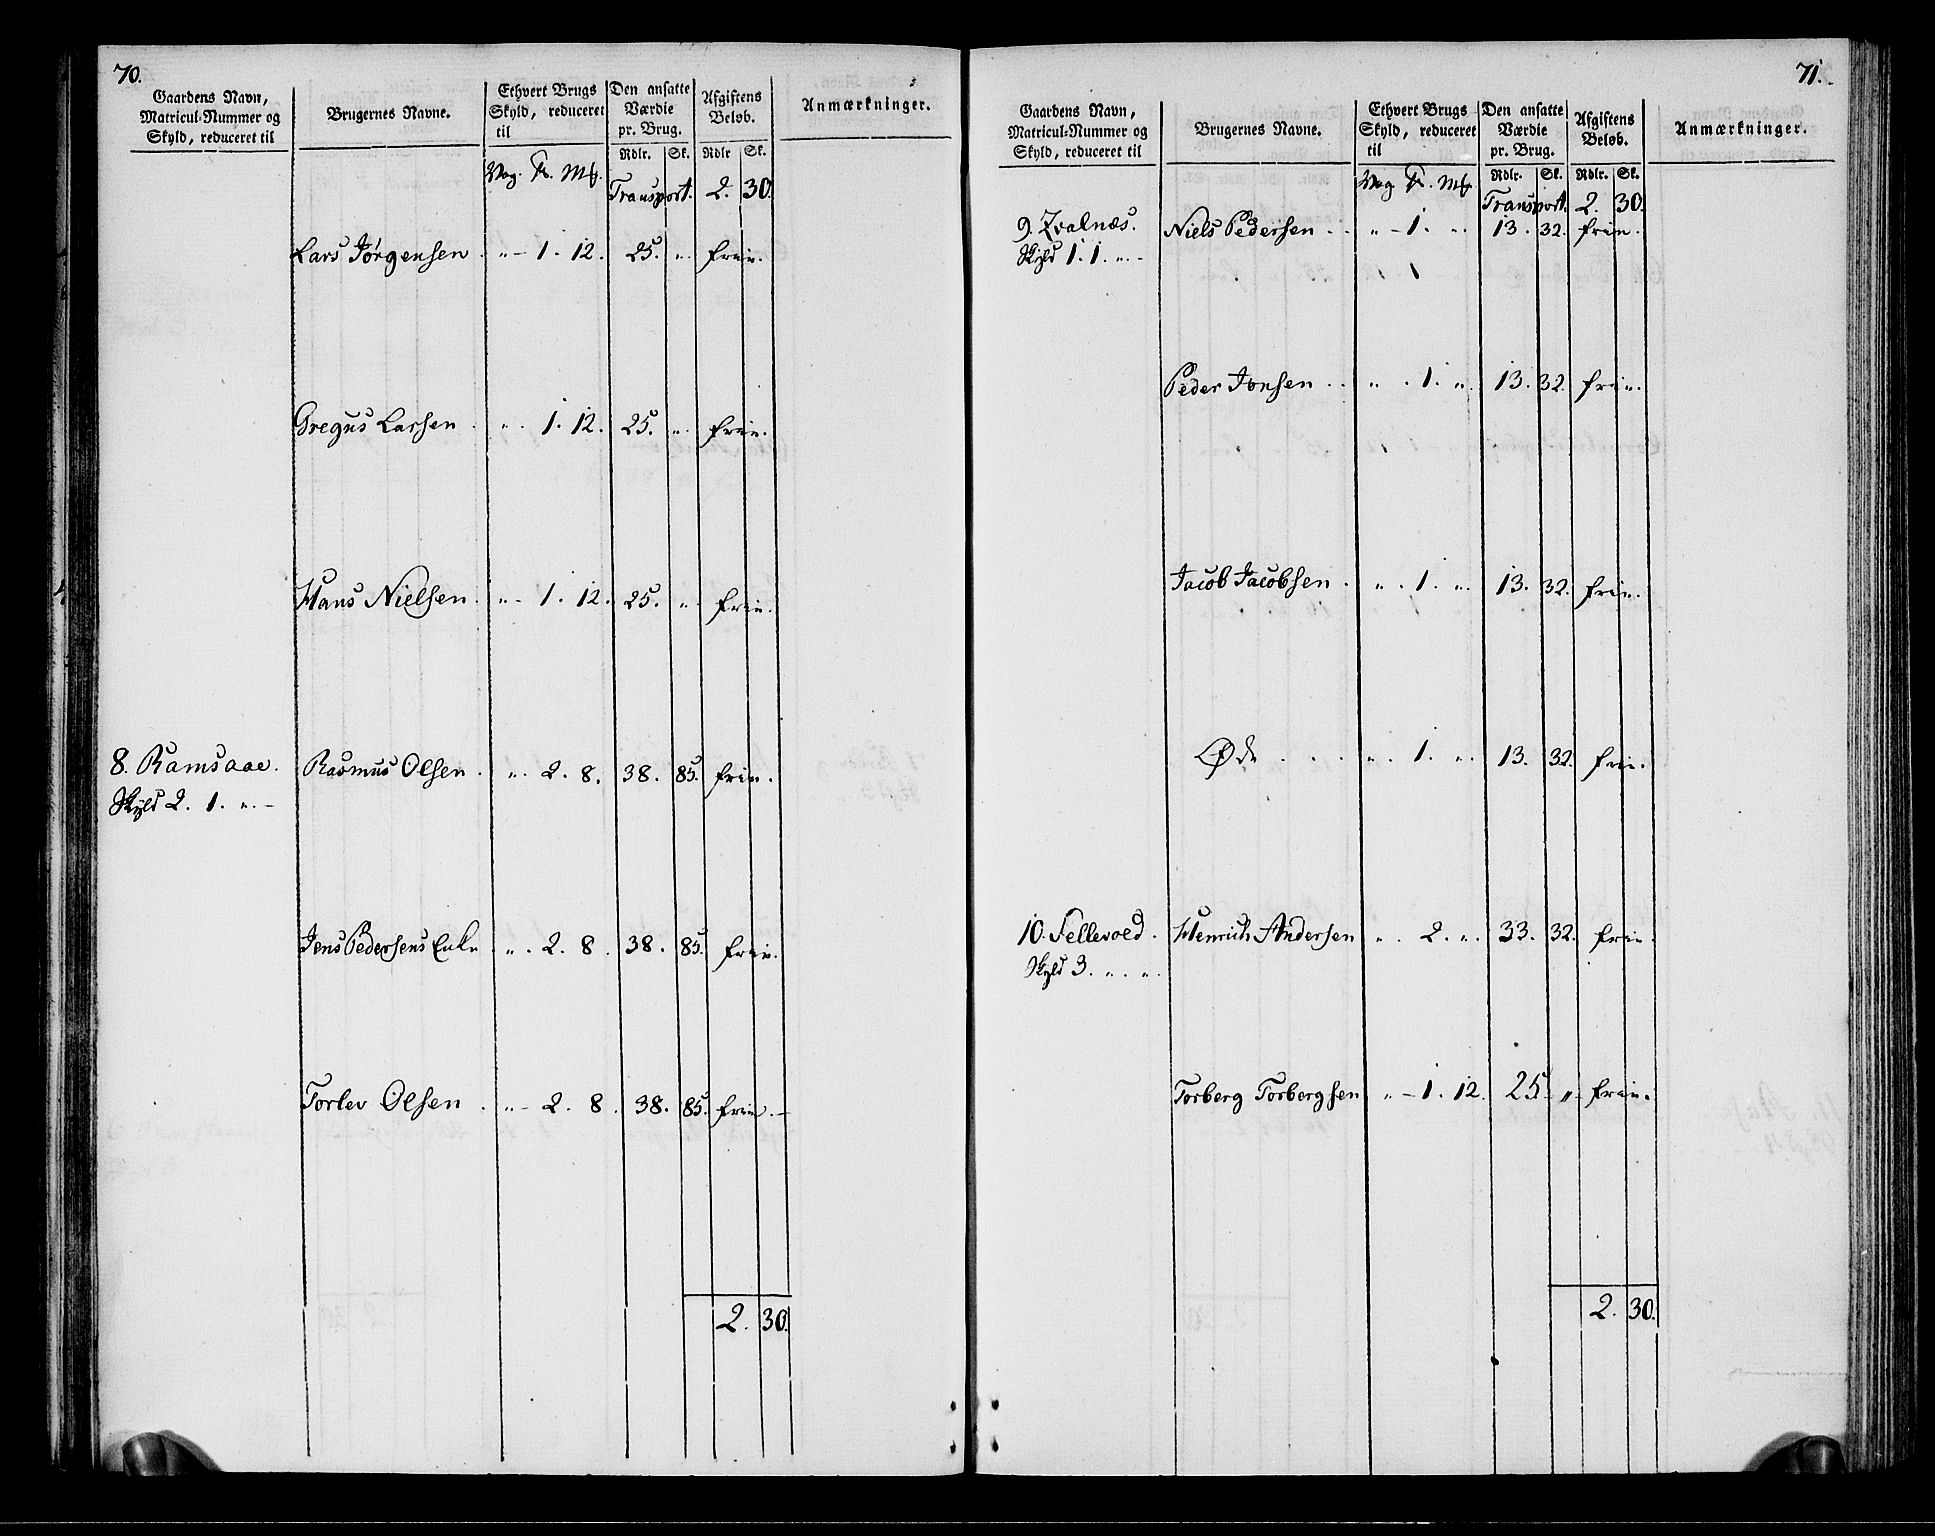 70.
Gaardens Navn, Matricul-Nummer og Skyld, reduceret til | Brugernes Navne. | Ethvert Brugs Skyld, reduceret til | Den ansatte Værdie pr. Brug. Rdlr. Sk. | Afgiftens Beløb. Rdlr Sk. | Anmærkninger.
Vog. Pd. Mk. Transport. 2. 30.
Lars Jørgensen . „ – 1. 12. 25. „. frie.
Gregus Larsen . „ . 1. 12. 25. „. frie.
Hans Nielsen . „ – 1. 12. 25. „. frie.
8. Ramsaae. Rasmus Olsen . „ . 2. 8. 38. 85. frie.
Skyld 2. 1. „. –
Jens Pedersens Enke „ . 2. 8. 38. 85. frie.
Torlev Olsen . „ – 2. 8. 38. 85. frie. –
2. 30.
71.
Gaardens Navn, Matricul-Nummer og Skyld, reduceret til | Brugernes Navne. | Ethvert Brugs Skyld, reduceret til | Den ansatte Værdie pr. Brug. Rdlr. Sk. | Afgiftens Beløb. Rdlr. Sk. | Anmærkninger.
Vog. Pd. Mk. Transport. 2. 30.
9. Kvalnæs. Niels Pedersen . . „ – 1. „. 13. 32. frie.
Skyld 1. 1. „. –
Peder Jonsen . . „ . 1. „. 13. 32. frie.
Jacob Jacobsen . „ . 1. „. 13. 32. frie.
Øde . . . „ . 1. „. 13. 32. frie.
10. Fellevoed. Henrich Andersen „ . 2. „. 33. 32. frie.
Skyld 3. „. „.
Torberg Torbergsen „ – 1. 12. 25. „. frie.
2. 30.